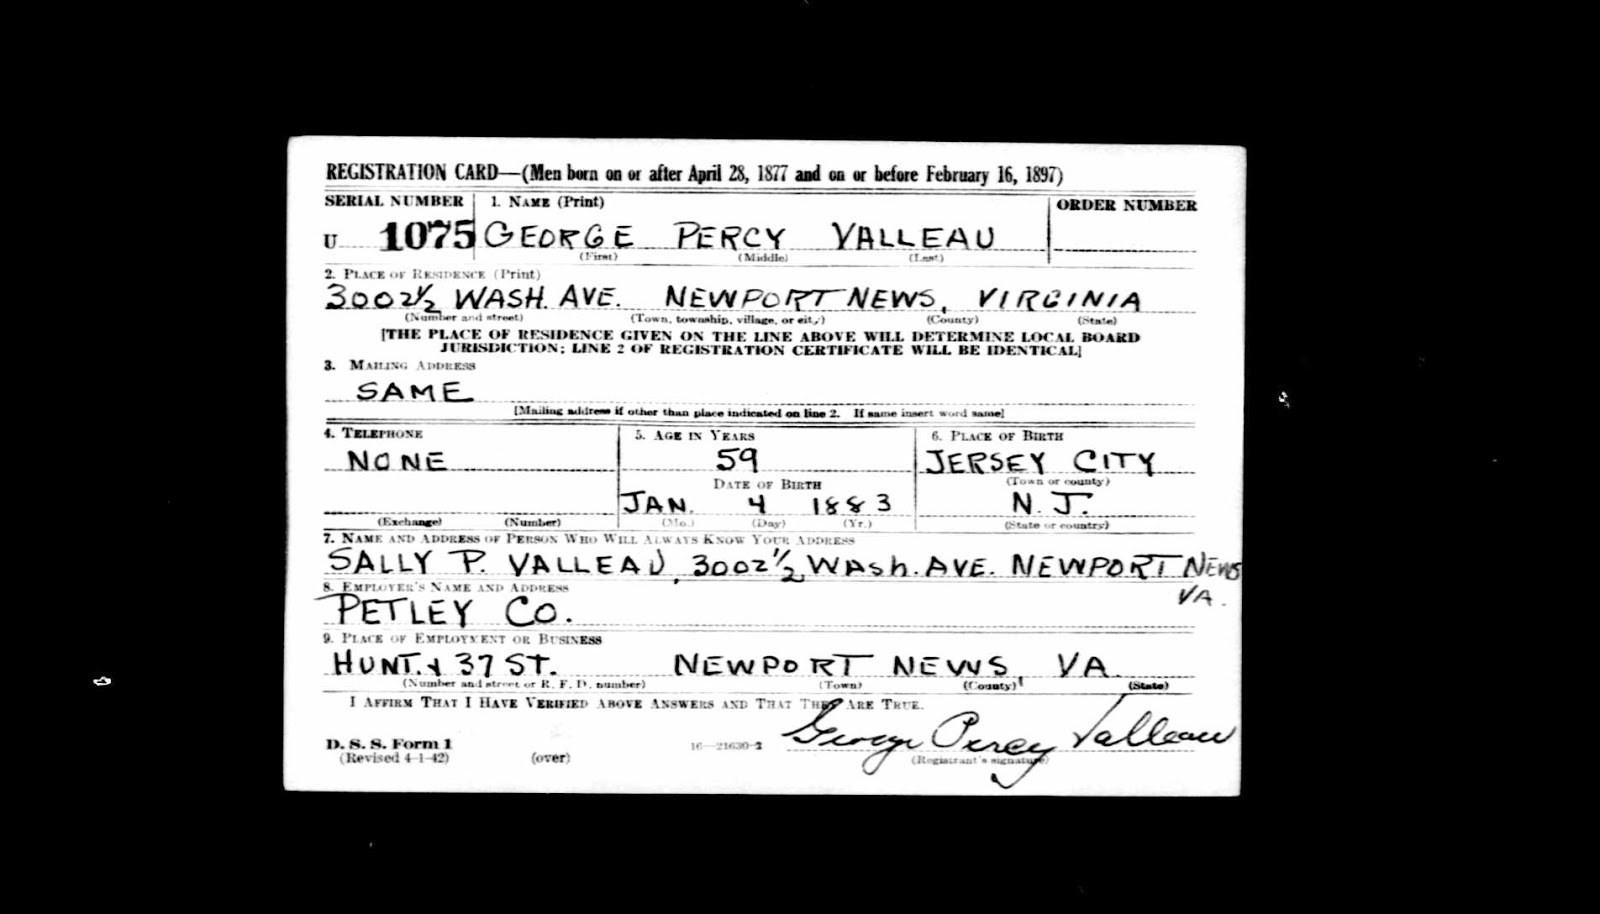 REGISTRATION CARD—(Men born on or after April 28, 1877 and on or before February 16, 1897)
SERIAL NUMBER 1. NAME (Print) ORDER NUMBER
U 1075 GEORGE PERCY VALLEAU
(First) (Middle) (Last)
2. PLACE OF RESIDENCE (Print)
3002½ WASH. AVE. NEWPORT NEWS, VIRGINIA
(Number and street) (Town, township, village, or city) (County) (State)
[THE PLACE OF RESIDENCE GIVEN ON THE LINE ABOVE WILL DETERMINE LOCAL BOARD
JURISDICTION; LINE 2 OF REGISTRATION CERTIFICATE WILL BE IDENTICAL]
3. MAILING ADDRESS
SAME
[Mailing address if other than place indicated on line 2. If same insert word same]
4. TELEPHONE 5. AGE IN YEARS 6. PLACE OF BIRTH
NONE 59 JERSEY CITY
DATE OF BIRTH (Town or county)
JAN. 4 1883 N.J.
(Exchange) (Number) (Mo.) (Day) (Yr.) (State or country)
7. NAME AND ADDRESS OF PERSON WHO WILL ALWAYS KNOW YOUR ADDRESS
SALLY P. VALLEAU, 3002½ WASh. AVE. NEWPORT NEWS
VA.
8. EMPLOYER'S NAME AND ADDRESS
PETLEY CO.
9. PLACE OF EMPLOYMENT OR BUSINESS
HUNT. & 37 ST. NEWPORT NEWS, VA.
(Number and street or R. F. D. number) (Town) (County) (State)
I AFFIRM THAT I HAVE VERIFIED ABOVE ANSWERS AND THAT THEY ARE TRUE.
George Percy Valleau
D. S. S. Form 1
(Revised 4-1-42) (over) 16—21630-2 (Registrant's signature)